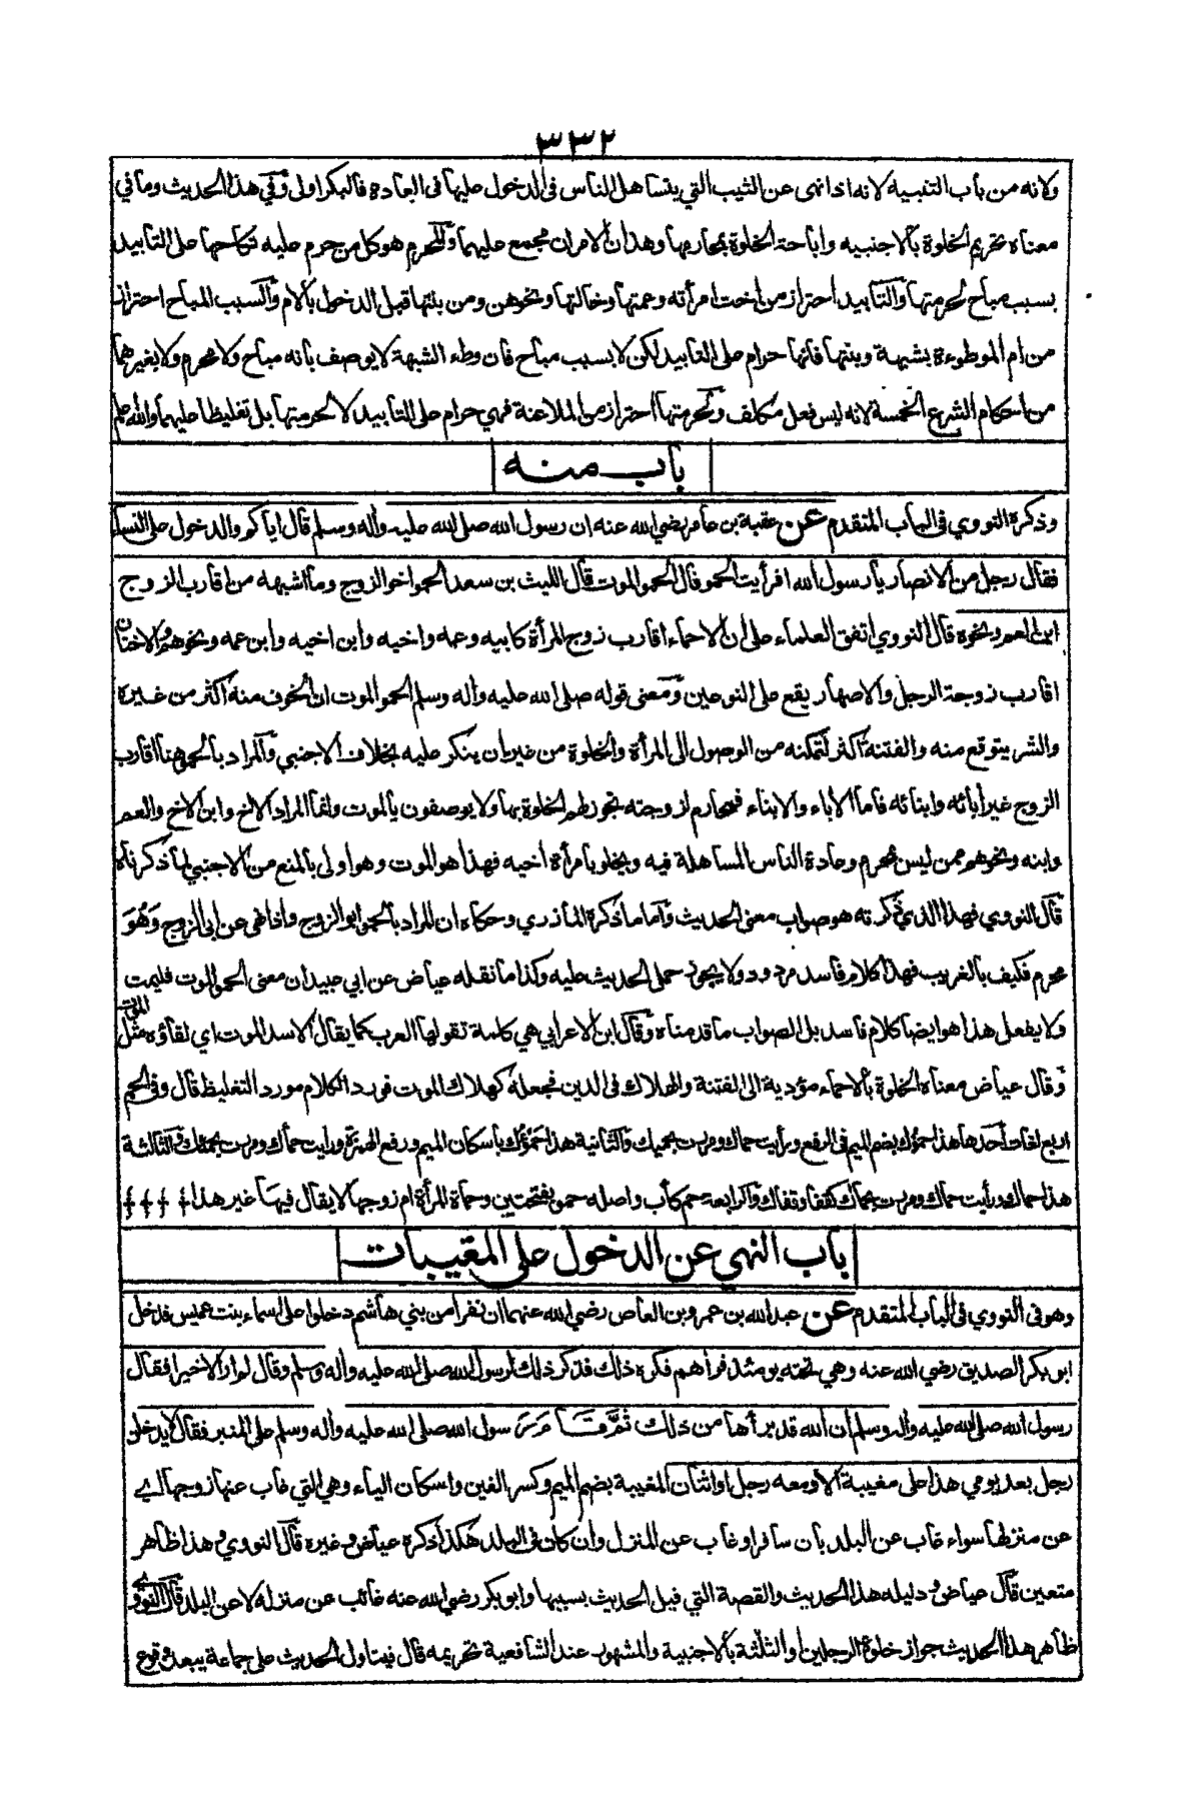 ٣٣٢
ولانه من باب التنبيه لانه اذا نهى عن الثيب التي يتساهل الناس فى الدخول عليها فى العادة فالبكر اولى وفي هذا الحديث وما في
معناه تحريم الخلوة بالاجنبيه واباحة الخلوة بمحارمها وهذان الامران مجمع عليهما والمحرم هو كل من حرم عليه نكاحها على التابيد
بسبب مباح لحرمتها والتابيد احتراز من اخت امرأته وعمتها وخالتها ونحوهن ومن بنتها قبل الدخول بالام والسبب المباح احتراز
من ام الموطوءة بشبهة وبنتها فانها حرام على التابيد لكن لا بسبب مباح فان وطء الشبهة لا يوصف بانه مباح ولا محرم ولا بغيرهما
من احكام الشرع الخمسة لانه ليس فعل مكلف ولحرمتها احتراز من الملاعنة فهي حرام على التابيد لا لحرمتها بل تغليظا عليهما والله اعلم
باب منه
وذكره النووي فى الباب المتقدم عن عقبة بن عامر رضي الله عنه ان رسول الله صلى الله عليه وأله وسلم قال اياكم والدخول على النساء
فقال رجل من الانصار يا رسول الله افرأيت الحمو قال الحمو الموت قال الليث بن سعد الحمو اخو الزوج وما اشبهه من اقارب الزوج
ابن العم ونحوه قال النووي اتفق العلماء على ان الاحماء اقارب زوج المرأة كابيه وعمه واخيه وابن اخيه وابن عمه ونحوهم والاختان
اقارب زوجة الرجل والاصهار يقع على النوعين ومعنى قوله صلى الله عليه وأله وسلم الحمو الموت ان الخوف منه اكثر من غيره
والشر يتوقع منه والفتنة اكثر لتمكنه من الوصول الى المرأة والخلوة من غير ان ينكر عليه بخلاف الاجنبي والمراد بالحمو هنا اقارب
الزوج غير أبائه وابنائه فاما الأباء والابناء فمحارم لزوجته تجوز لهم الخلوة بها ولا يوصفون بالموت وانما المراد الاخ وابن الاخ والعم
وابنه ونحوهم ممن ليس بمحرم وعادة الناس المساهلة فيه ويخلو بامرأة اخيه فهذا هو الموت وهو اولى بالمنع من الاجنبي لما ذكرناه
قال النووي فهذا الذي ذكرته هو صواب معنى الحديث واما ما ذكره المازري وحكاه ان المراد بالحمو ابو الزوج واذا نهى عن ابى الزوج وَهُوَ
محرم فكيف بالغريب فهذا كلام فاسد مردود ولا يجوز حمل الحديث عليه وكذا ما نقله عياض عن ابي عبيد ان معنى الحمو الموت فليمت
ولا يفعل هذا هو ايضا كلام فاسد بل الصواب ما قدمناه وقال ابن الاعرابي هي كلمة تقولها العرب كما يقال الاسد الموت اي لقاؤه مثل الموت
وقال عياض معناه الخلوة بالاحماء مؤدية الى الفتنة والهلاك فى الدين فجعله كهلاك الموت فورد الكلام مورد التغليظ قال وفى الحم
اربع لغات احدها هذا حموك بضم الميم فى الرفع ورأيت حماك ومررت بحميك والثانية هذا حَمْؤُك باسكان الميم ورفع الهمزة ورايت حمأك ومررت بحمئك والثالثة
هذا حماك ورأيت حماك ومررت بحماك كقفا وقفاك والرابعة حم كأب واصله حمو بفتحتين وحماة المرأة ام زوجها لا يقال فيها غير هذا
باب النهي عن الدخول على المغيبات
وهو فى النووي فى الباب المتقدم عن عبد الله بن عمرو بن العاص رضي الله عنهما ان نفرا من بني هاشم دخلوا على اسماء بنت عميس فدخل
ابو بكر الصديق رضي الله عنه وهي تحته يومئذ فرأهم فكره ذلك فذكر ذلك لرسول الله صلى الله عليه وأله وسلم وقال لم ار الا خيرا فقال
رسول الله صلى الله عليه وأله وسلم ان الله قد برأها من ذلك ثُمَّ قَامَ رسول الله صلى الله عليه وأله وسلم على المنبر فقال لا يدخلن
رجل بعد يومي هذا على مغيبة الا ومعه رجل او اثنان المغيبة بضم الميم وكسر الغين واسكان الياء وهي التي غاب عنها زوجها اي
عن منزلها سواء غاب عن البلد بان سافر او غاب عن المنزل وان كان فى البلد هكذا ذكره عياض وغيره قال النووي وهذا ظاهر
متعين قال عياض ودليله هذا الحديث والقصة التي قيل الحديث بسببها وابو بكر رضي الله عنه غائب عن منزله لا عن البلد قال النووي
ظاهر هذا الحديث جواز خلوة الرجلين او الثلثة بالاجنبية والمشهور عند الشافعية تحريمه قال فيتاول الحديث على جماعة يبعد وقوع